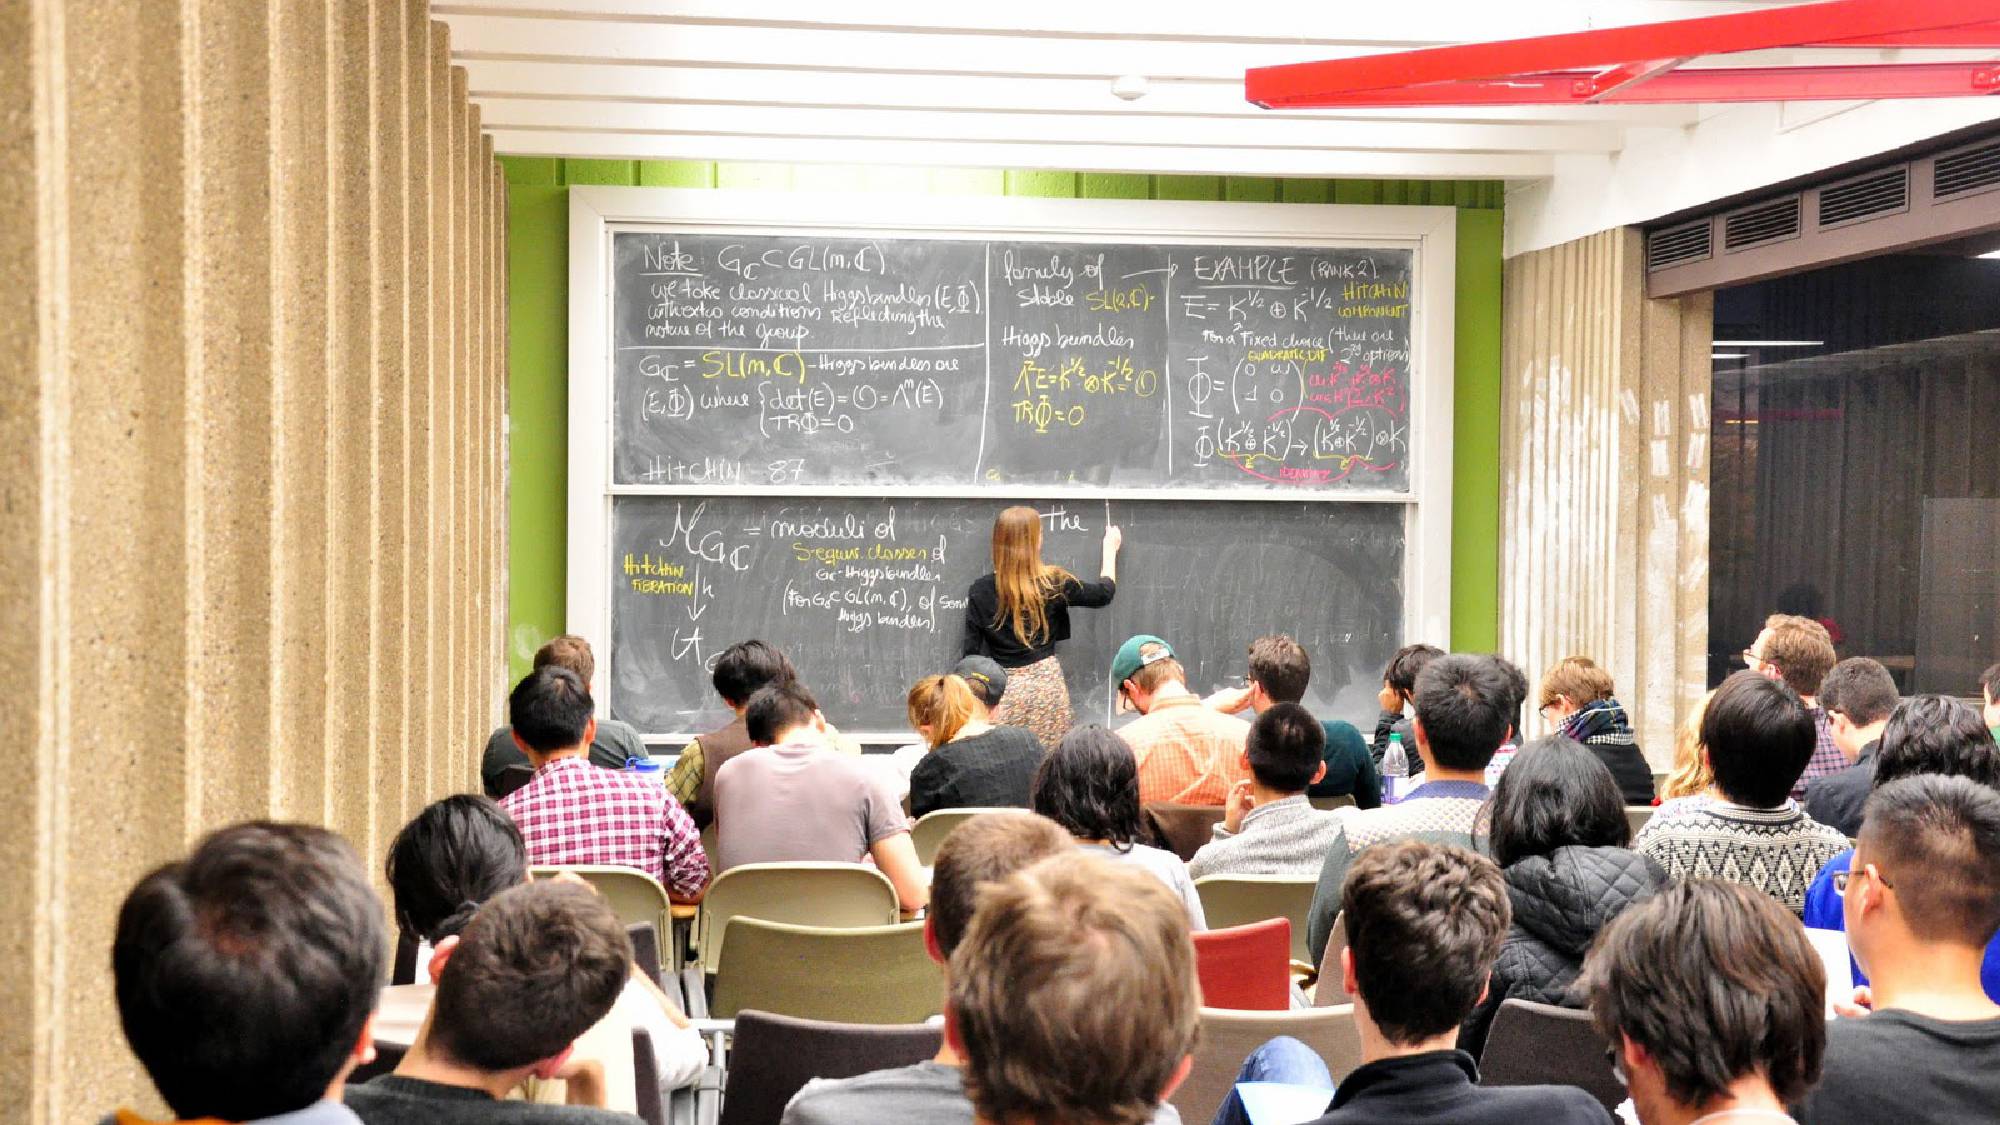 Note: G_ℂ ⊂ GL(n, ℂ)
we take classical Higgs bundles (E, Φ)
with extra conditions reflecting the
nature of the group.
G_ℂ = SL(n, ℂ)-Higgs bundles are
(E, Φ) where { det(E) = O = Λⁿ(E)
TRΦ = 0
HITCHIN 87
family of
stable SL(2, ℂ)-
Higgs bundles
Λ²E = K^{1/2} ⊗ K^{-1/2} = O
TRΦ = 0
EXAMPLE (RANK 2).
E = K^{1/2} ⊕ K^{-1/2}
HITCHIN
COMPONENT
for a fixed choice (there are
2^{2g} options)
QUADRATIC DIF
Φ = (0 ω
1 0)
Φ (K^{1/2} ⊕ K^{-1/2}) → (K^{1/2} ⊕ K^{-1/2}) ⊗ K
E E
IDENTITY
M_{G_ℂ} = moduli of
S-equiv. classes of
G_ℂ-Higgs bundles
(for G_ℂ ⊂ GL(n, ℂ), of
Higgs bundles)
HITCHIN
FIBRATION
h
A_G
The